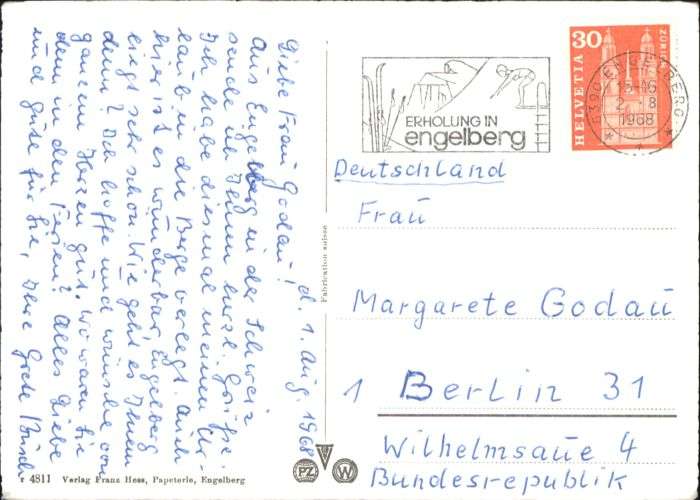 Liebe Frau Godau! d. 1. Aug. 1968
Aus Engelberg in der Schweiz
sende ich Ihnen herzl. Grüße.
Ich habe diesmal meinen Ur-
laub in die Berge verlegt. Auch
hier ist es wunderbar, Engelberg
liegt sehr schön. Wie geht es Ihnen
denn? Ich hoffe und wünsche von
ganzem Herzen gut. Wo waren Sie
denn in den Ferien? Alles Liebe
und Gute für Sie, Ihre Grete
4811 Verlag Franz Hess, Papeterie, Engelberg
Fabrication suisse
PZ
W
ERHOLUNG IN
engelberg
6390 ENGELBERG
2. 8
1968
30
HELVETIA
ZÜRICH
Deutschland
Frau
Margarete Godau
1 Berlin 31
Wilhelmsaue 4
Bundesrepublik